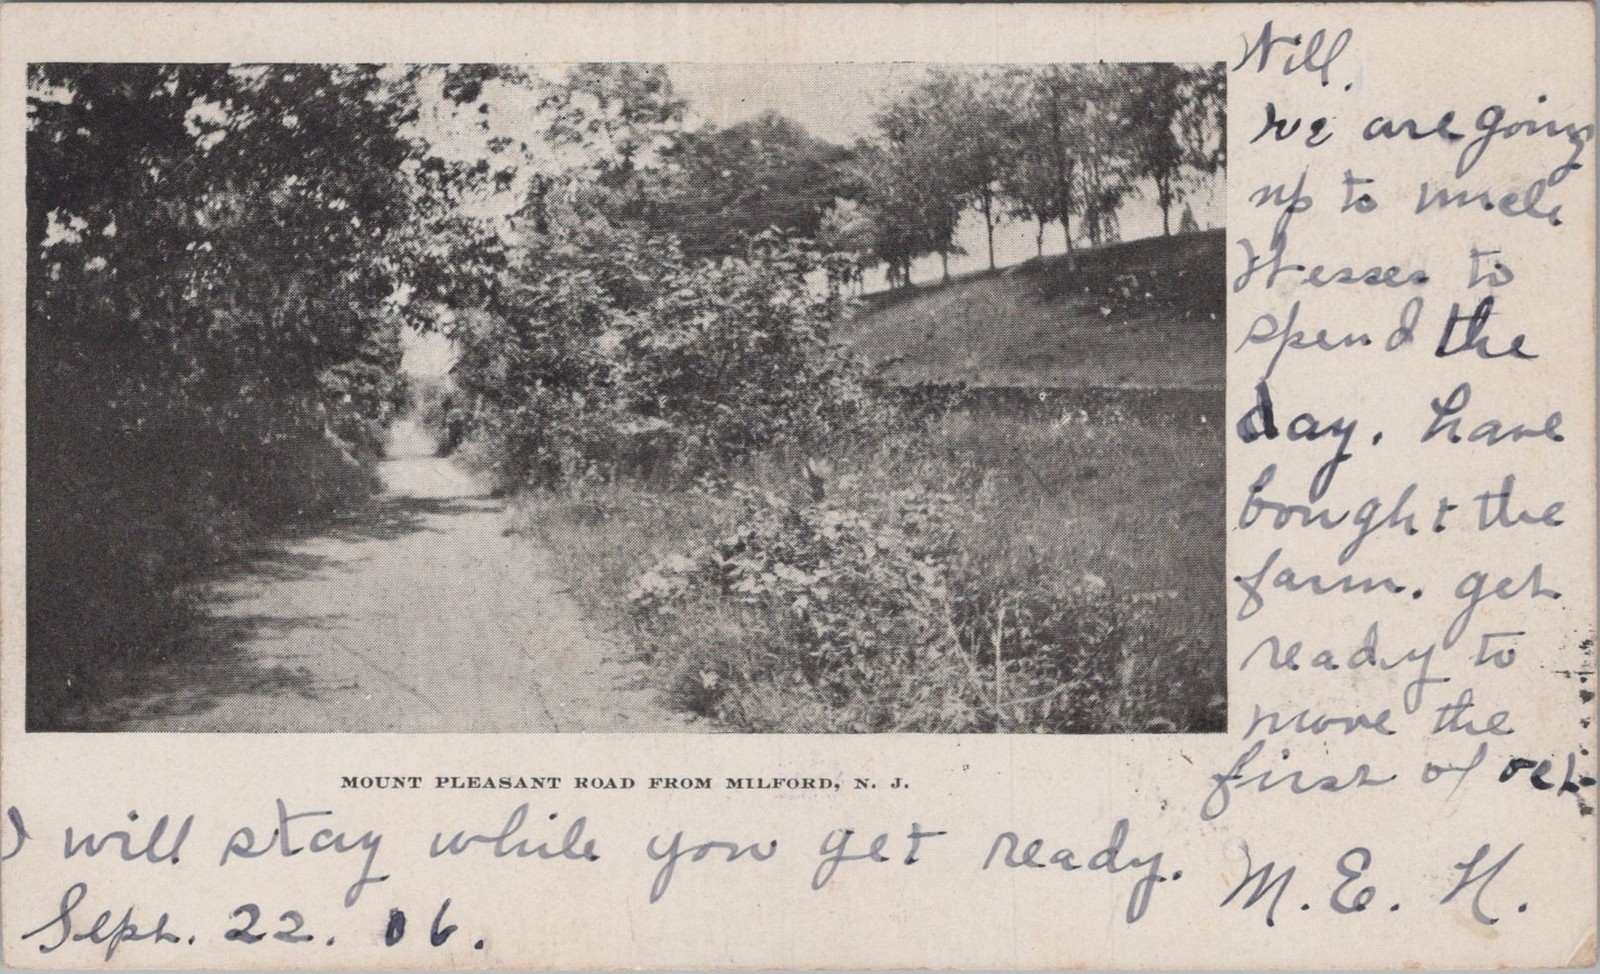 Will.
we are going
up to uncle
Wesses to
spend the
day. have
bought the
farm. get
ready to
move the
first of oct.
MOUNT PLEASANT ROAD FROM MILFORD, N. J.
I will stay while you get ready.
M. E. H.
Sept. 22. 06.